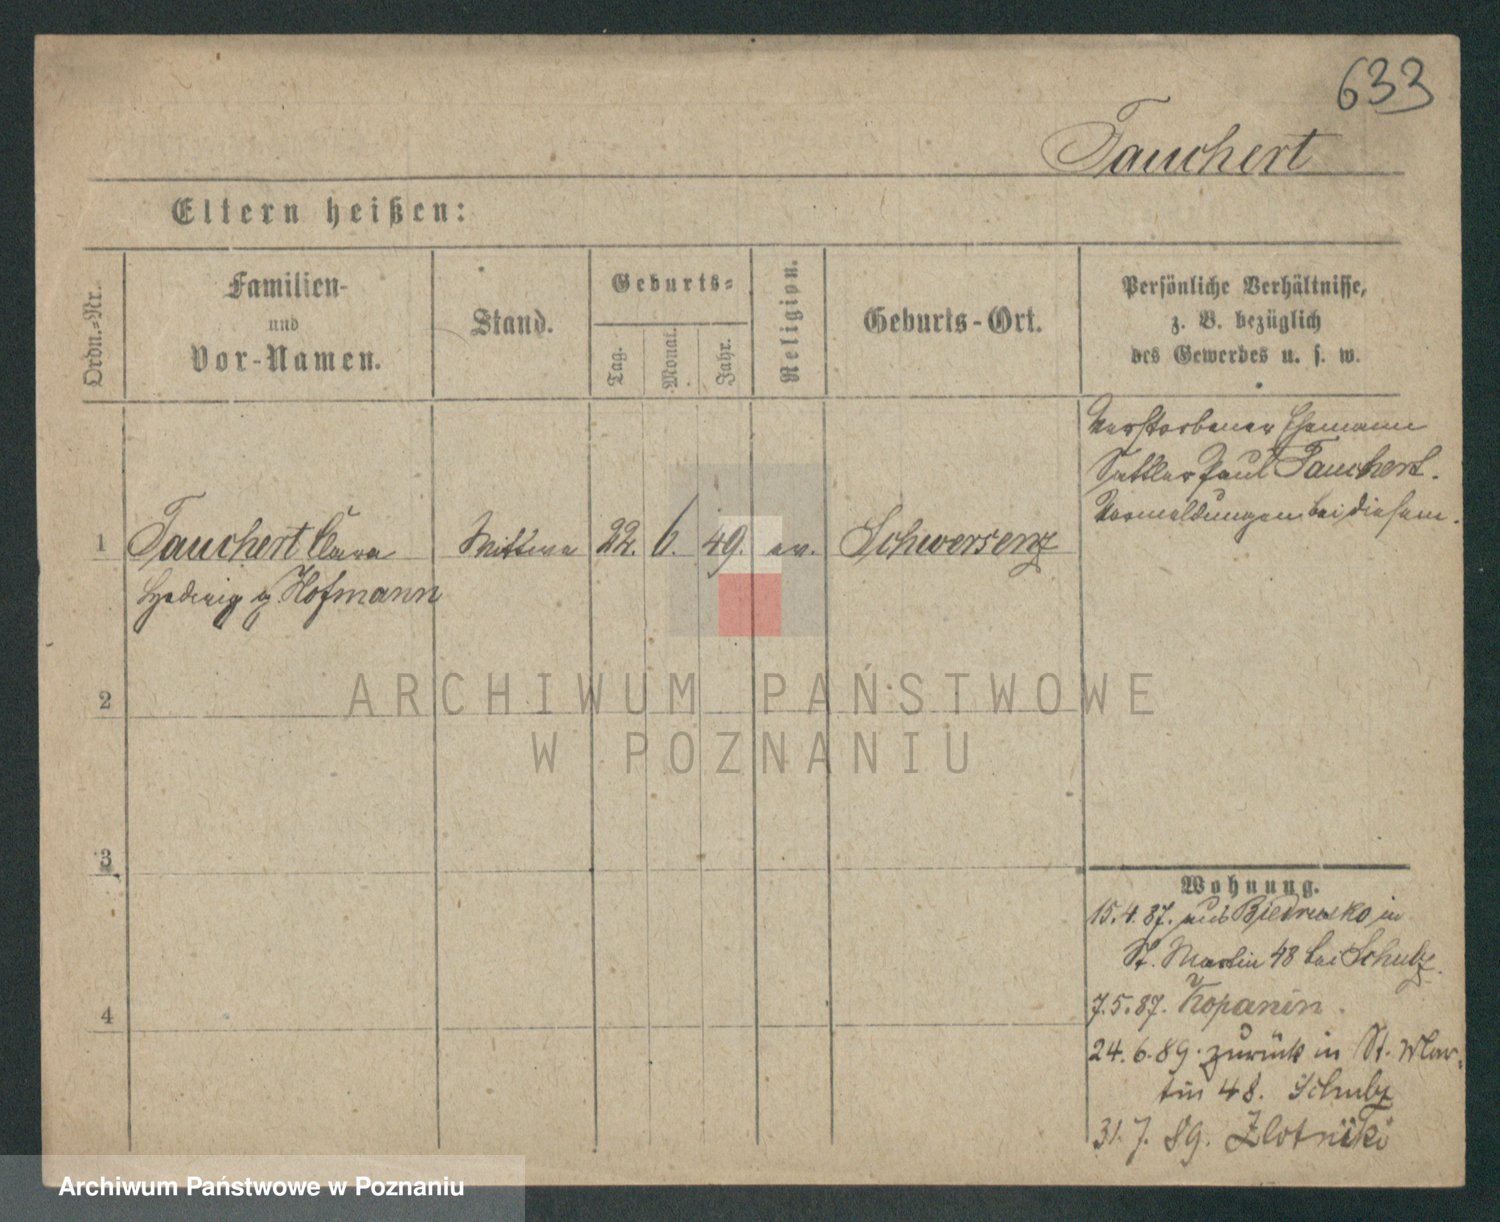 633
Tauchert
Eltern heißen:
Ordn.-Nr.
Familien-
und
Vor-Namen.
Stand.
Geburts-
Tag.
Monat.
Jahr.
Religion.
Geburts-Ort.
Persönliche Verhältnisse,
z. B. bezüglich
des Gewerbes u. s. w.
Verstorbener Ehemann
Sattler Paul Tauchert.
Vermeldungen bei diesem.
1 Tauchert Clara Wittwe 22. 6. 49. ev. Schwersenz
Hedwig g. Hofmann
2
3
4
Wohnung.
15.4.87. aus Biedrusko in
St. Martin 48 bei Schulz.
7.5.87. Kopanin.
24.6.89. zurück in St. Mar-
tin 48. Schulz
31.7.89. Zlotniki
ARCHIWUM PAŃSTWOWE
W POZNANIU
Archiwum Państwowe w Poznaniu